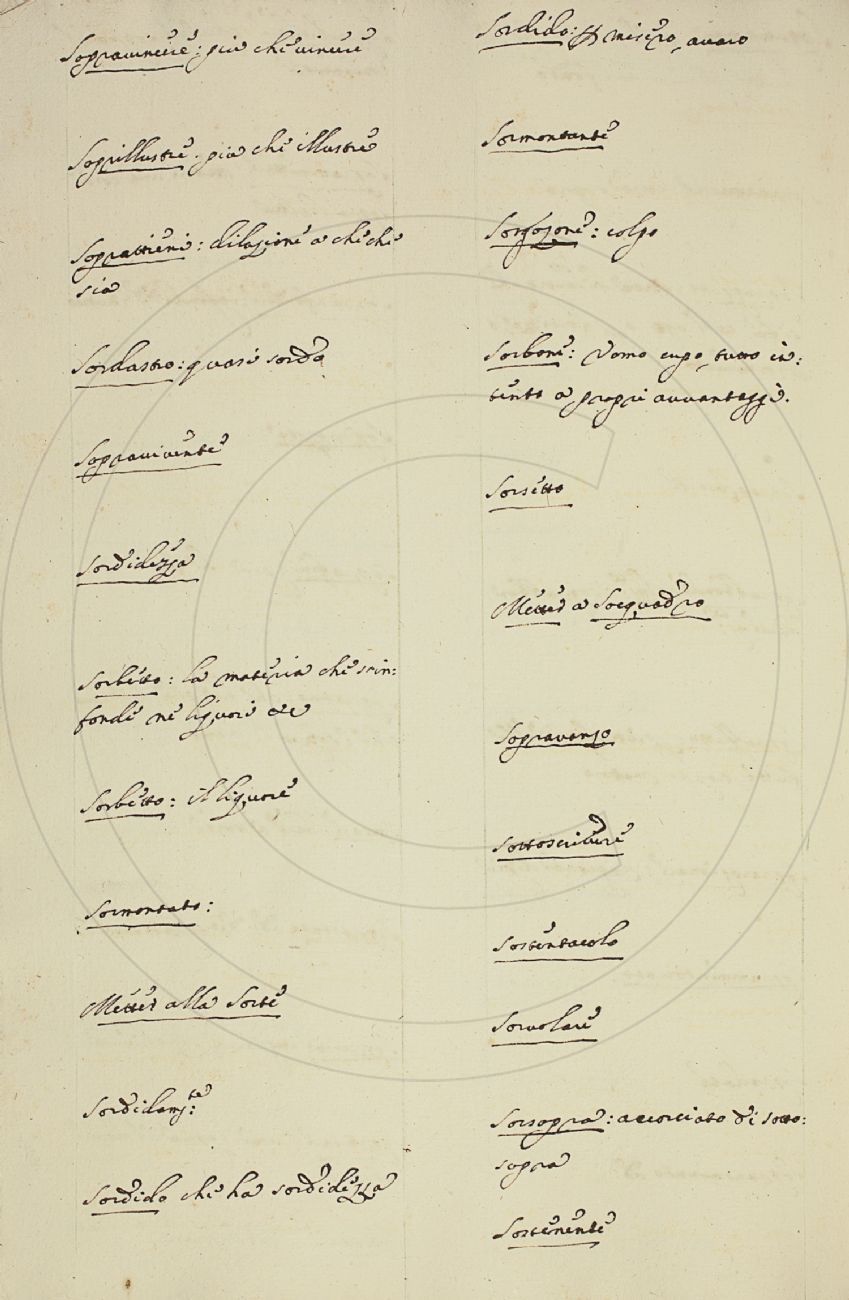 Sopravincere: più che vincere
Sopr'illustre: più che illustre
Soprattieni: dilazione a che che
sia
Sordastro: quasi sordo
Sopravivente
Sordidezza
Sorbetto: la materia che s'in=
fonde ne liquori &c
Sorbetto: il liquore
Sormontato:
Metter alla Sorte
Sordidam:te
Sordido che ha sordidezza
Sordido: p misero, avaro
Sormontante
Sorgozone: colpo
Sorbone: Vomo cupo, tutto in=
tento a proprj avvantaggi.
Sorsetto
Metter a Soequadro
Sopravanzo
Sottoscrivere
Sostentacolo
Sorvolare
Sorsopra: accorciato di sotto=
sopra
Sostenente